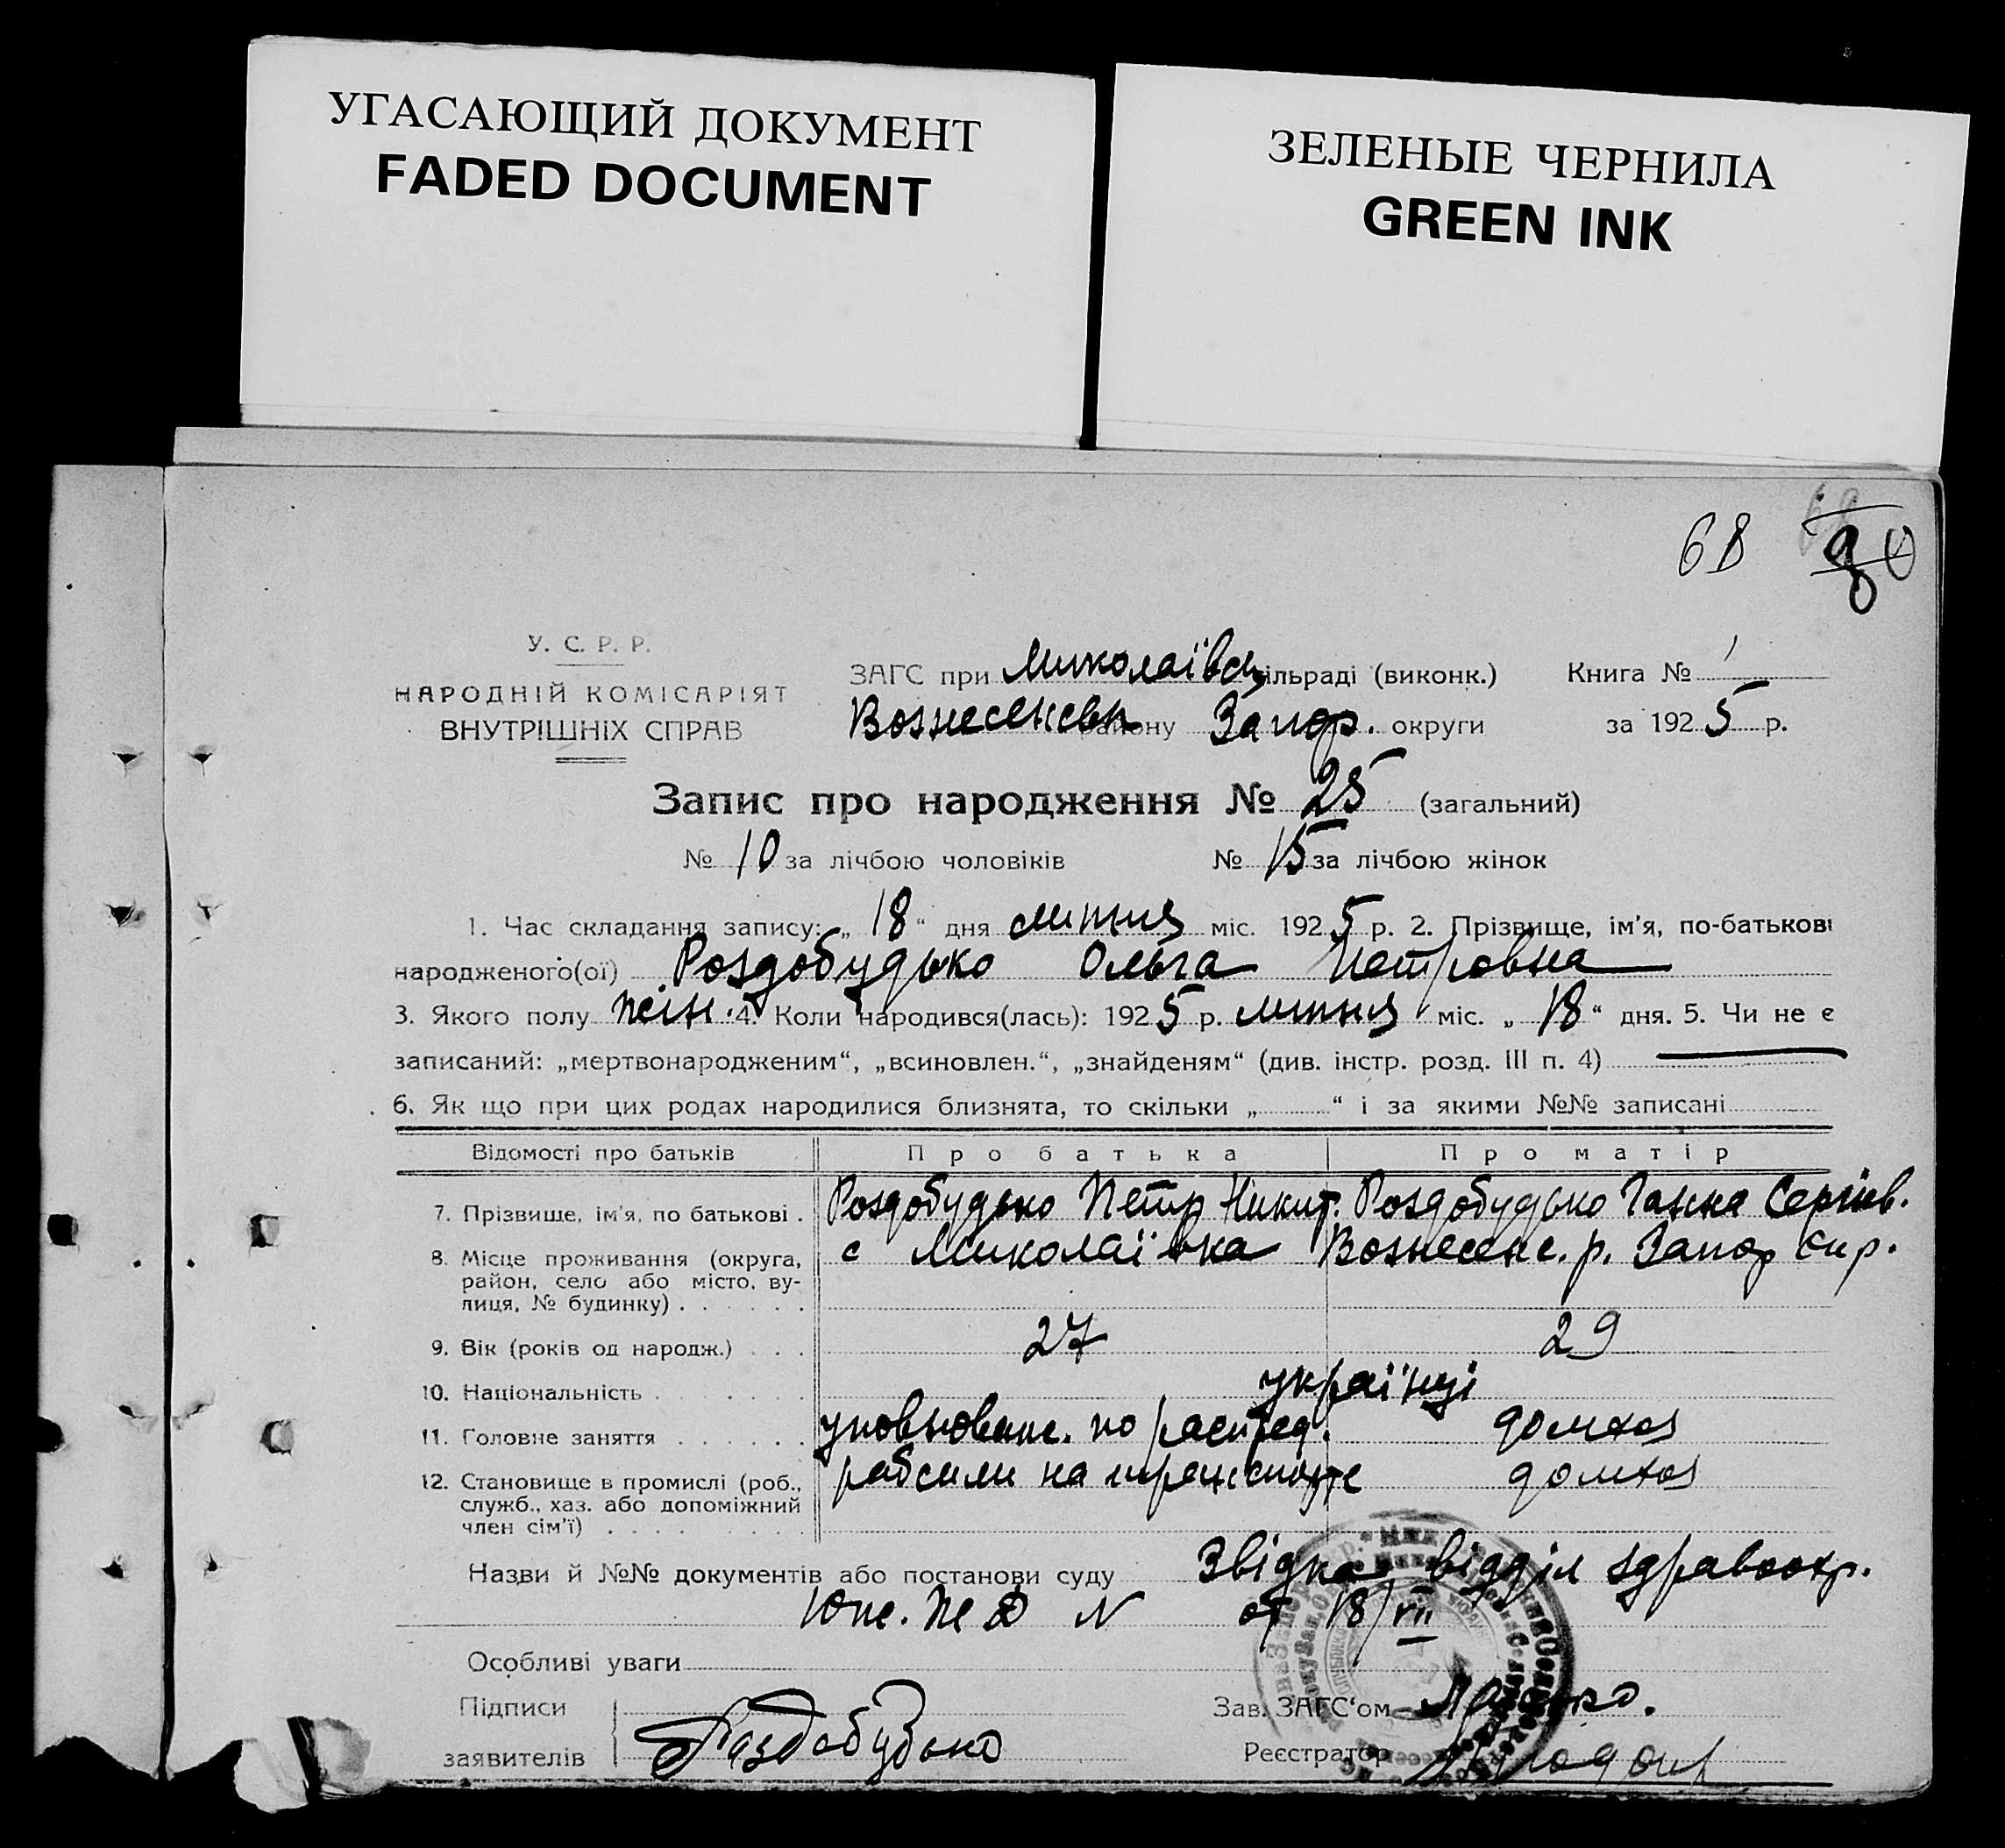 УГАСАЮЩИЙ ДОКУМЕНТ
FADED DOCUMENT
ЗЕЛЕНЫЕ ЧЕРНИЛА
GREEN INK
68 80
У. С. Р. Р.
НАРОДНІЙ КОМІСАРІЯТ
ВНУТРІШНІХ СПРАВ
ЗАГС при Миколаївськ ільраді (виконк.) Книга № 1
Вознесенськ району Запор. округи за 1925 р.
Запис про народження № 25 (загальний)
№ 10 за лічбою чоловіків № 15 за лічбою жінок
1. Час складання запису: „ 18 “ дня липня міс. 1925 р. 2. Прізвище, ім’я, по-батькові
народженого(ої) Роздобудько Ольга Петровна
3. Якого полу жін. 4. Коли народився(лась): 1925 р. липня міс. „ 18 “ дня. 5. Чи не є
записаний: „мертвонародженим“, „всиновлен.“, „знайденям“ (див. інстр. розд. III п. 4)
6. Як що при цих родах народилися близнята, то скільки „ “ і за якими №№ записані
Відомості про батьків Про батька Про матір
7. Прізвище, ім’я, по батькові . Роздобудько Петр Никит. Роздобудько Ганна Сергіев.
8. Місце проживання (округа, район, село або місто, вулиця, № будинку) . с Миколаївка Вознесенс. р. Запор окр.
9. Вік (років од народж.) 27 29
10. Національність українці
11. Головне заняття уповновенс. по распред. домхоз
12. Становище в промислі (роб., служб., хаз. або допоміжний член сім’ї) рабсили на транспорте домхоз
Назви й №№ документів або постанови суду Звідка відділ здравоохр.
Юж. Ж Д N от 18/VII
Особливі уваги
Підписи
заявителів Раздобудько
Зав. ЗАГС‘ом
Реєстратор